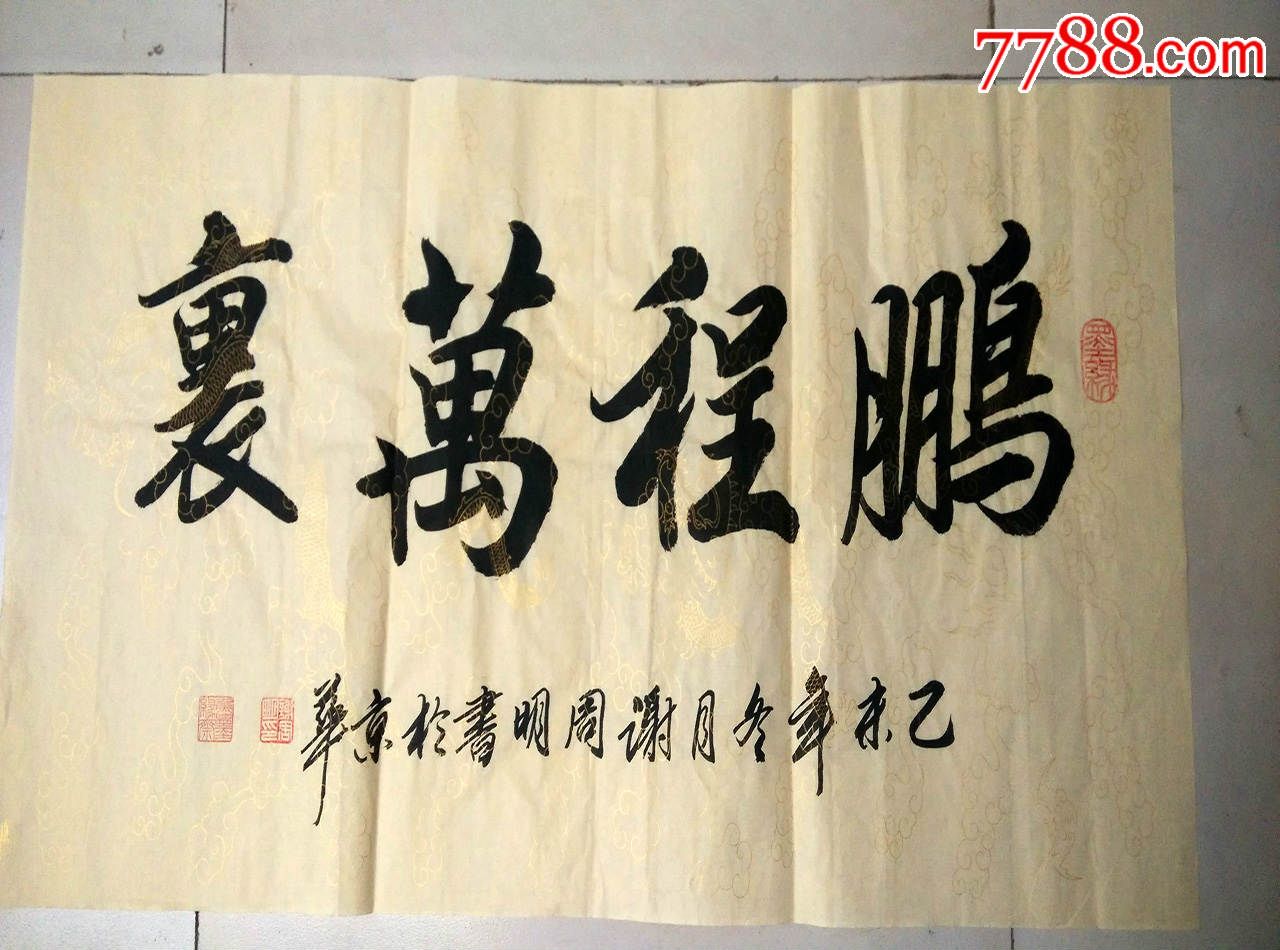 7788.com
鹏程萬裏
乙未年冬月謝周明書於京華